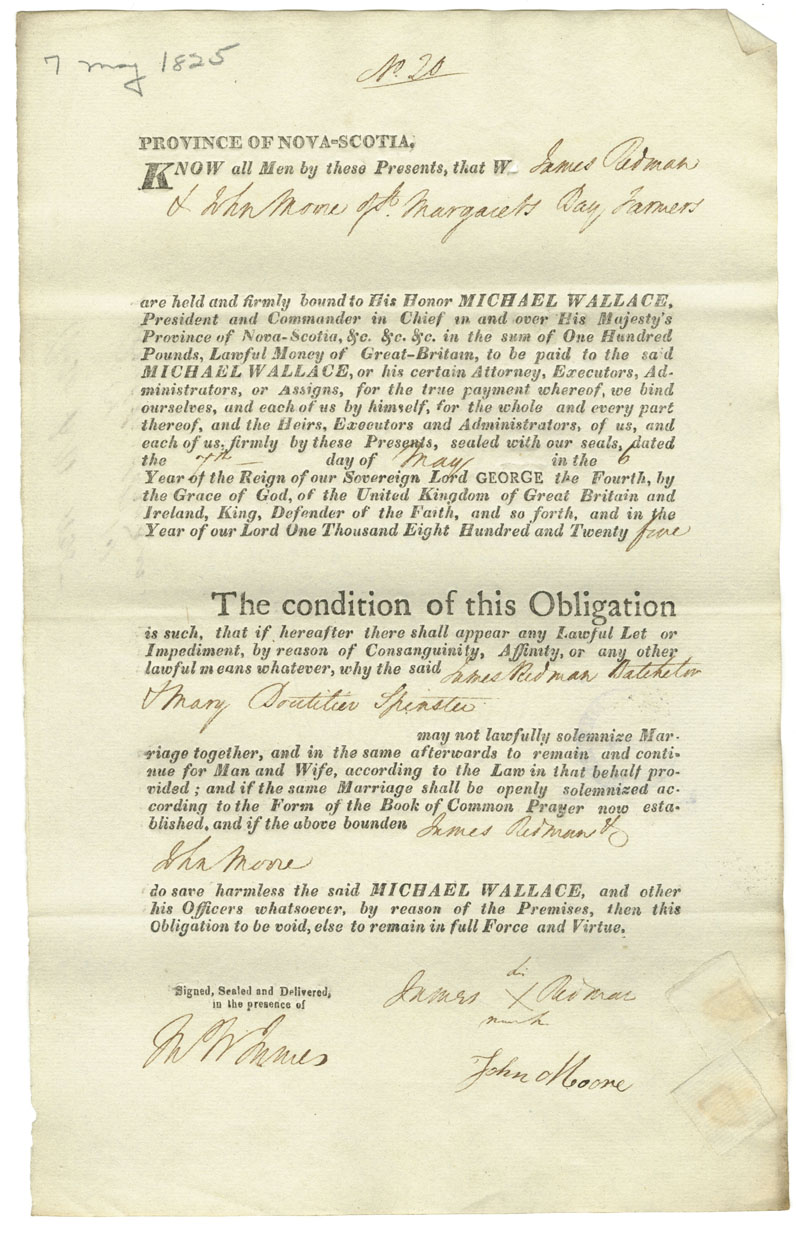 7 May 1825
No. 20
PROVINCE OF NOVA-SCOTIA,
KNOW all Men by these Presents, that W James Redman
& John Moore of St. Margarets Bay Farmers
are held and firmly bound to His Honor MICHAEL WALLACE,
President and Commander in Chief in and over His Majesty's
Province of Nova-Scotia, &c. &c. &c. in the sum of One Hundred
Pounds, Lawful Money of Great-Britain, to be paid to the said
MICHAEL WALLACE, or his certain Attorney, Executors, Ad-
ministrators, or Assigns, for the true payment whereof, we bind
ourselves, and each of us by himself, for the whole and every part
thereof, and the Heirs, Executors and Administrators, of us, and
each of us, firmly by these Presents, sealed with our seals, dated
the 7th day of May in the 6
Year of the Reign of our Sovereign Lord GEORGE the Fourth, by
the Grace of God, of the United Kingdom of Great Britain and
Ireland, King, Defender of the Faith, and so forth, and in the
Year of our Lord One Thousand Eight Hundred and Twenty five
The condition of this Obligation
is such, that if hereafter there shall appear any Lawful Let or
Impediment, by reason of Consanguinity, Affinity, or any other
lawful means whatever, why the said James Redman Batchelor
& Mary Boutilier Spinster
may not lawfully solemnize Mar-
riage together, and in the same afterwards to remain and conti-
nue for Man and Wife, according to the Law in that behalf pro-
vided; and if the same Marriage shall be openly solemnized ac-
cording to the Form of the Book of Common Prayer now esta-
blished, and if the above bounden James Redman &
John Moore
do save harmless the said MICHAEL WALLACE, and other
his Officers whatsoever, by reason of the Premises, then this
Obligation to be void, else to remain in full Force and Virtue.
Signed, Sealed and Delivered,
in the presence of
James X Redman
mark
John Moore